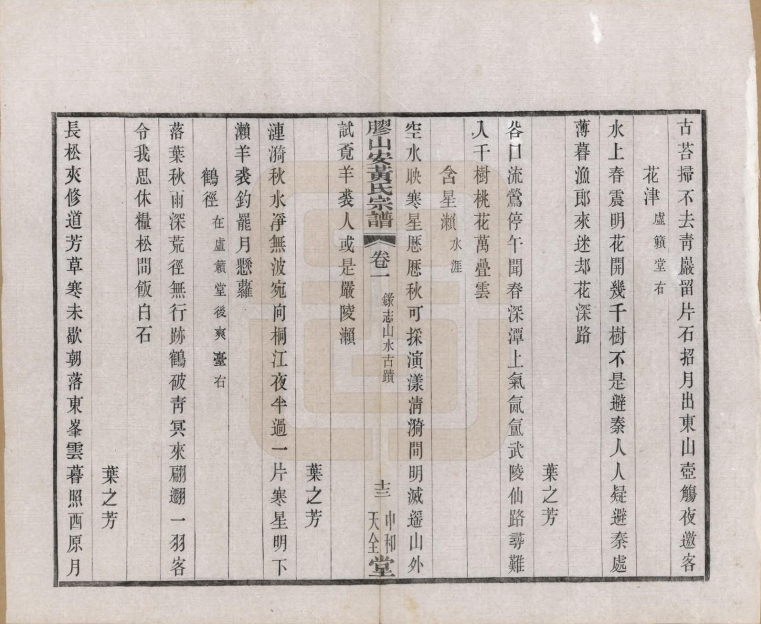 古苔掃不去青巖留片石招月出東山壺觴夜邀客
花津 虛籟堂右
水上春霞明花開幾千樹不是避秦人人疑避秦處
薄暮漁郎來迷却花深路
葉之芳
谷口流鶯停午聞春深潭上氣氤氳武陵仙路尋難
入千樹桃花萬疊雲
含星瀨 水涯
空水映寒星歷歷秋可採演漾清漪間明滅遥山外
試覓羊裘人或是嚴陵瀨
膠山安黃氏宗譜 卷一 錄志山水古蹟 十三 中和天全堂
葉之芳
漣漪秋水淨無波宛向桐江夜半過一片寒星明下
瀨羊裘釣罷月懸蘿
鶴徑 在虛籟堂後爽臺右
落葉秋雨深荒徑無行跡鶴破靑冥來翩翻一羽客
令我思休糧松間飯白石
葉之芳
長松夾修道芳草寒未歇朝落東峯雲暮照西原月